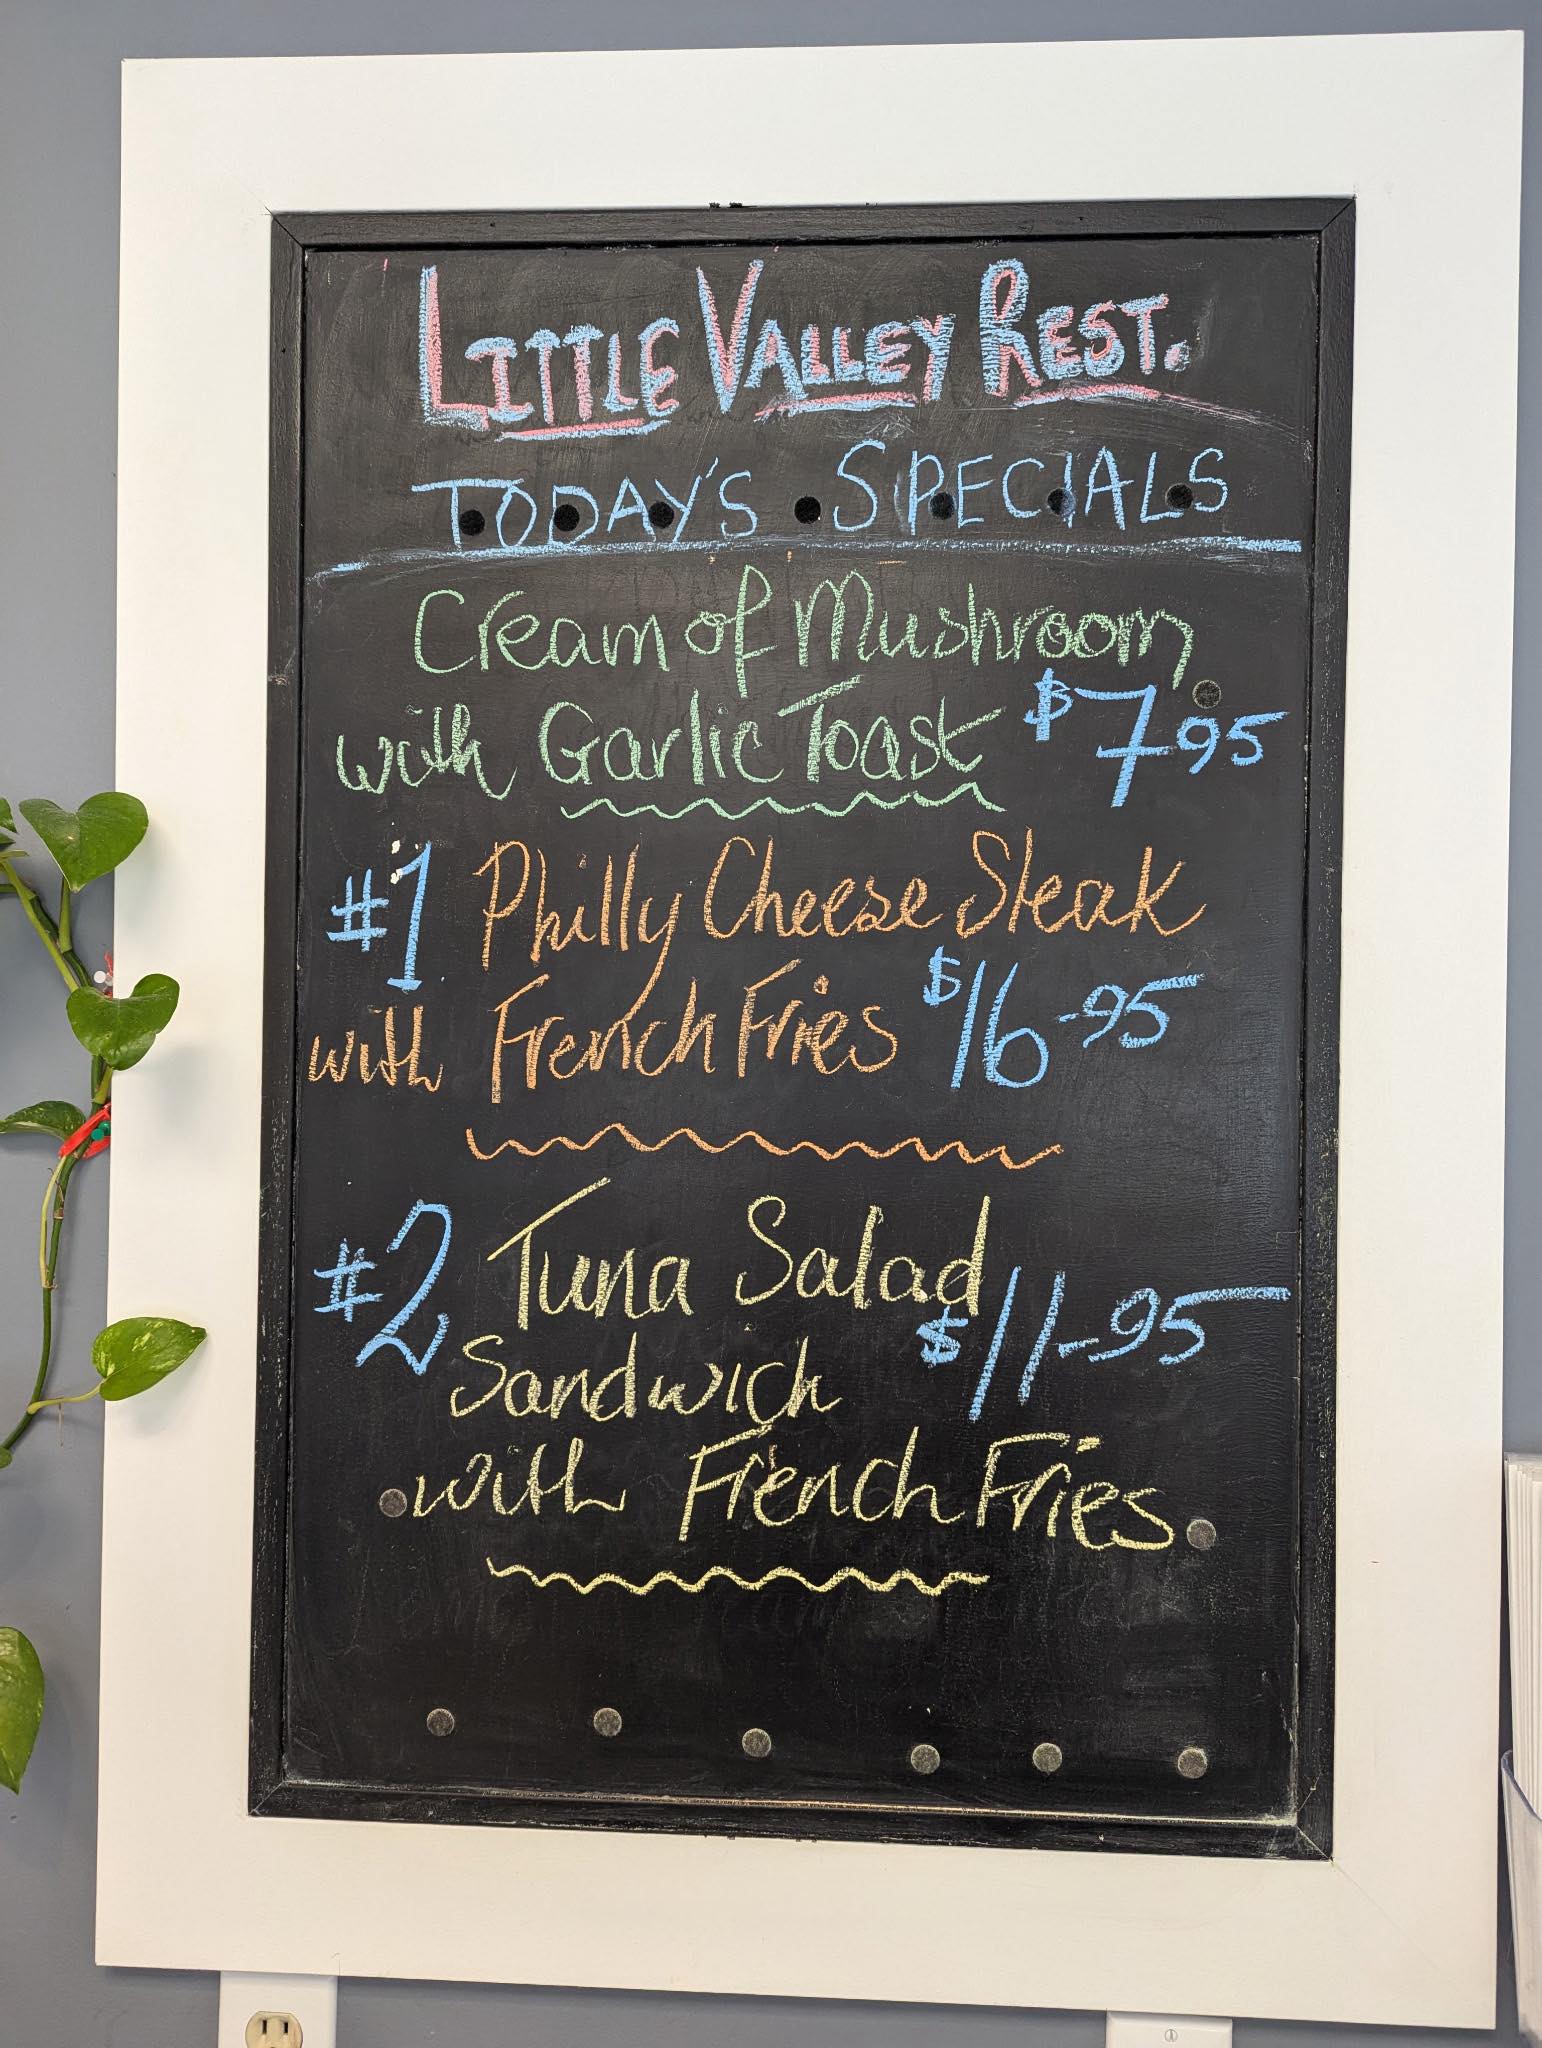 LITTLE VALLEY REST.
TODAY'S SPECIALS
Cream of Mushroom
with Garlic Toast $7 95
#1 Philly Cheese Steak
with French Fries $16-95
#2 Tuna Salad
Sandwich $11-95
with French Fries